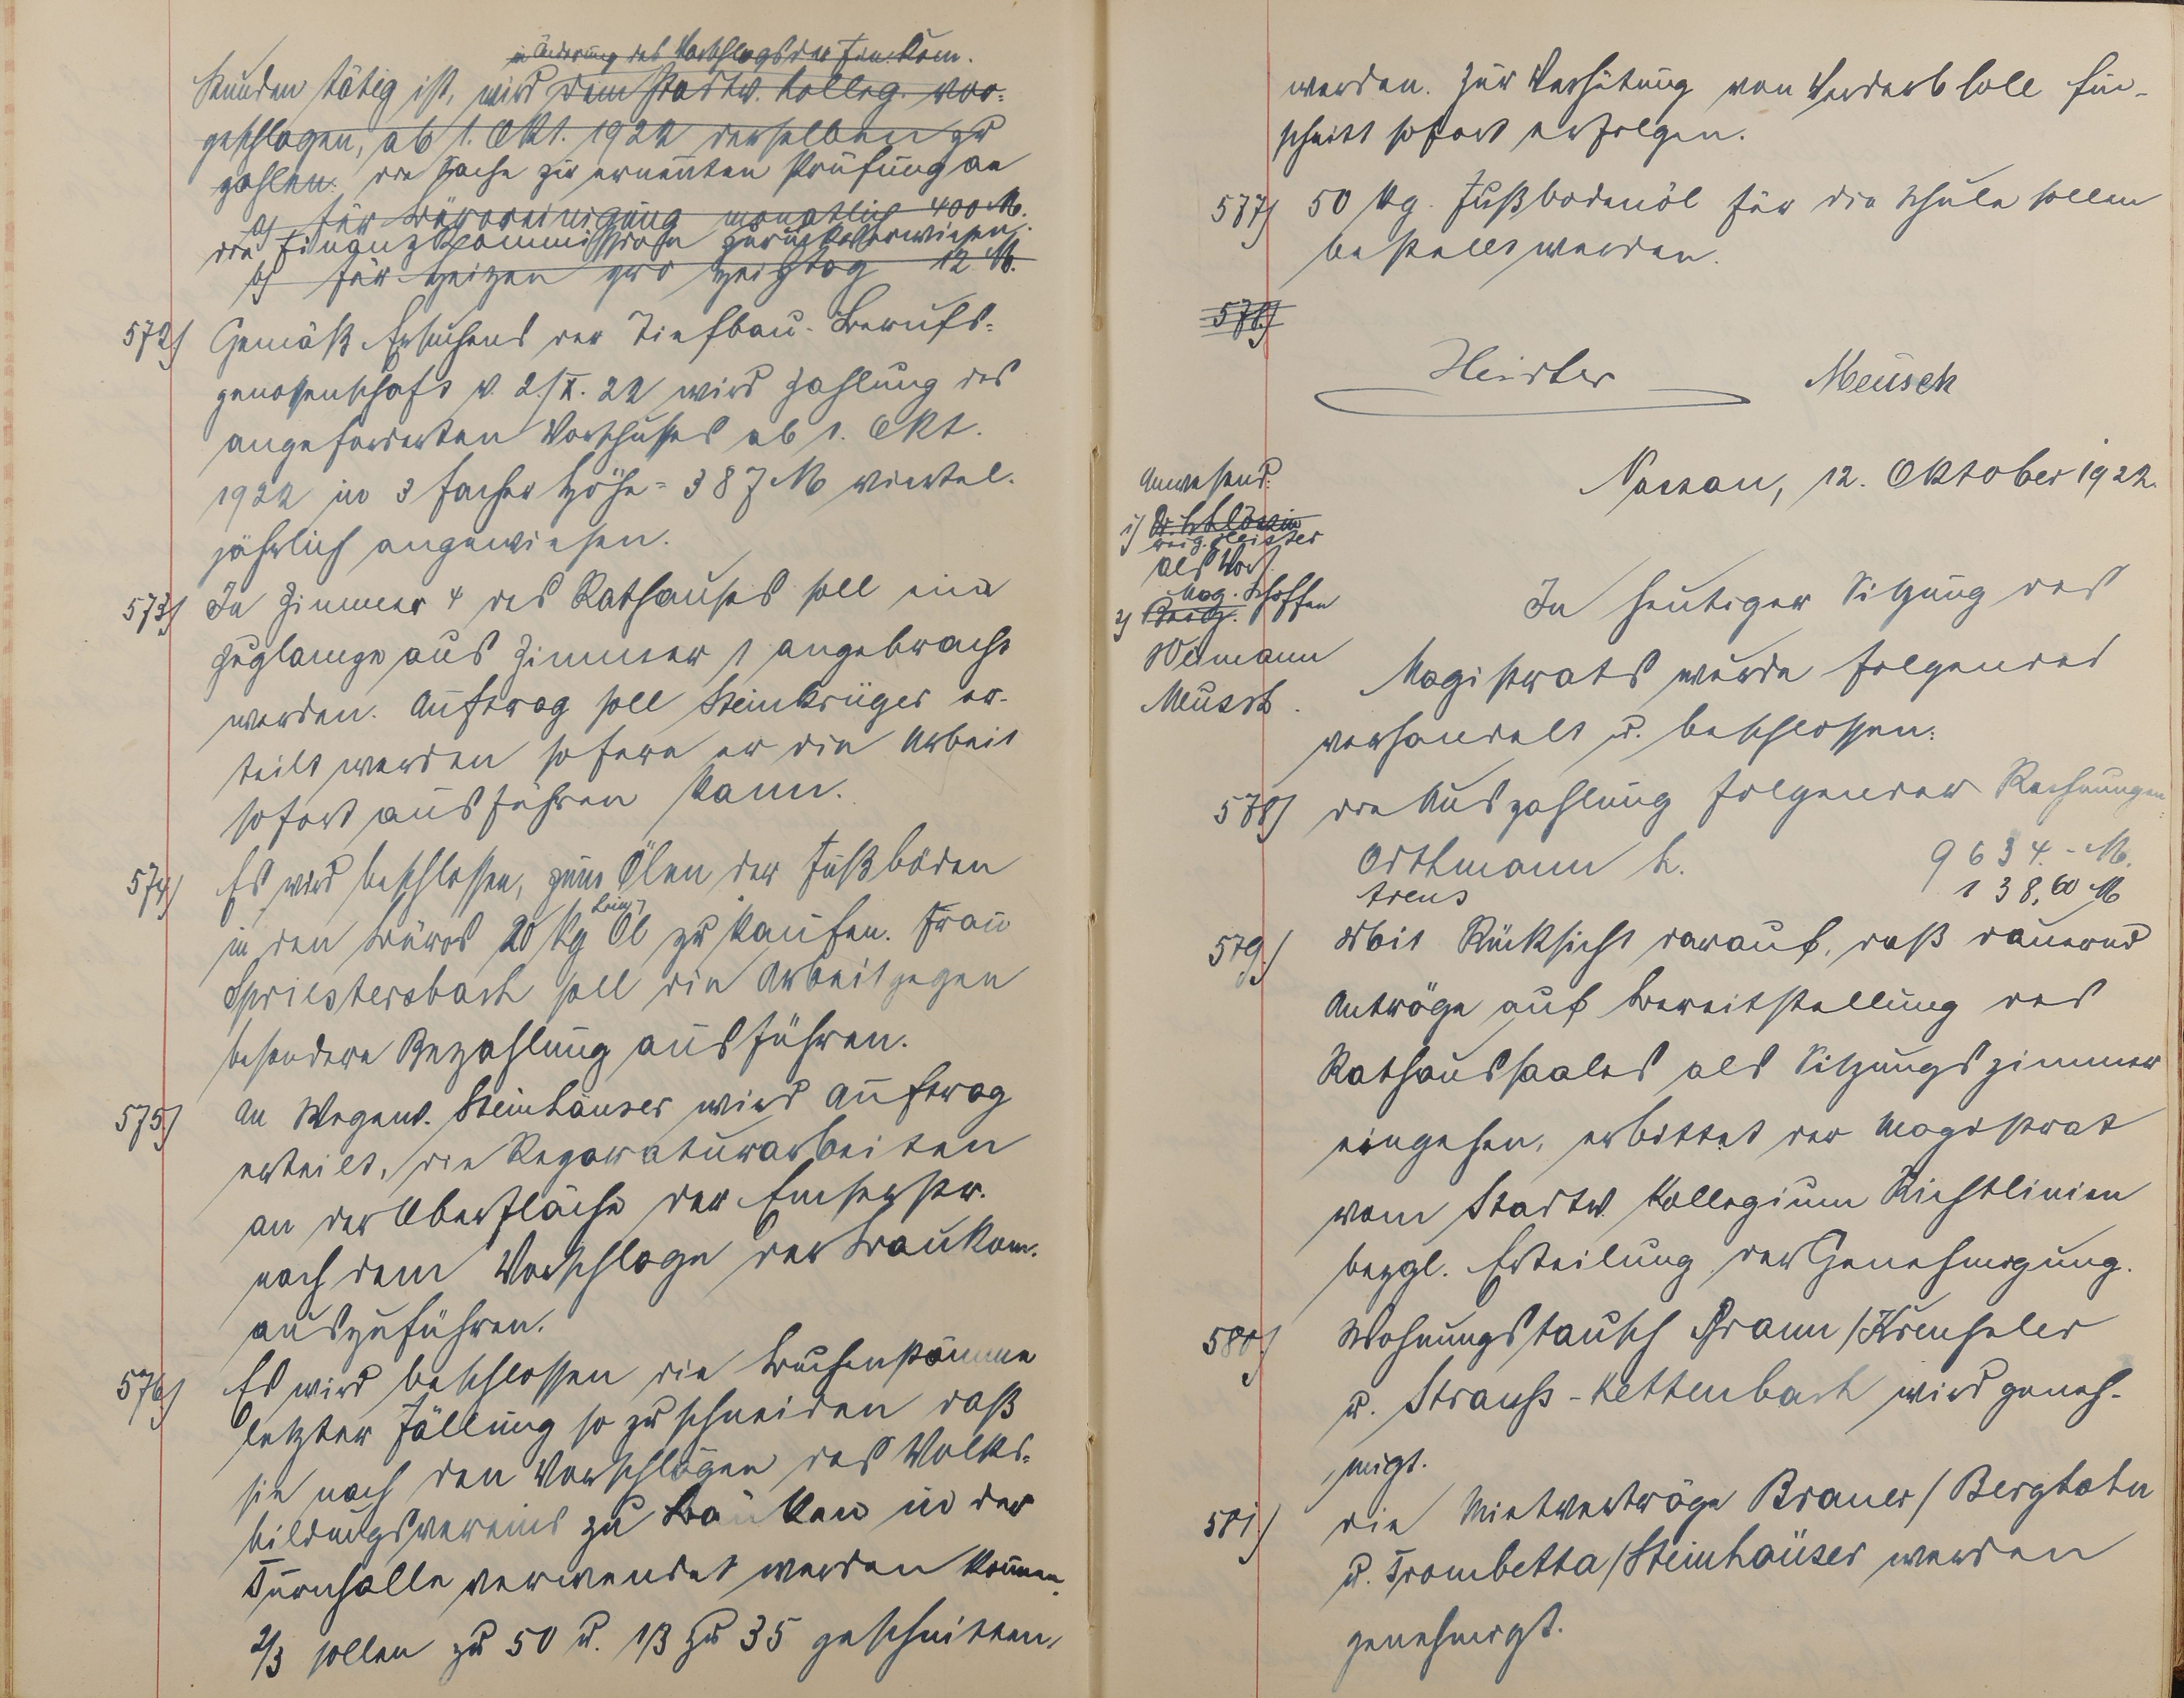 in Änderung des Vorschlags der Fin. Kom.
Stunden tätig ist, wird dem Stadtv. Kolleg. vor-
geschlagen, ab 1. Okt. 1922 derselben zu
zahlen: die Sache zur erneuten Prüfung an
a) für Büroreinigung monatlich 400 M.
die Finanzkommission zurückverwiesen.
b) für Heizen pro Heiztag 12 M.
572) Gemäß Ersuchens der Tiefbau-Berufs-
genossenschaft v. 2./X. 22 wird Zahlung des
angeforderten Vorschusses ab 1. Okt.
1922 in 3 facher Höhe = 387 M viertel-
jährlich angewiesen.
573) In Zimmer 4 des Rathauses soll eine
Zuglampe aus Zimmer 1 angebracht
werden. Auftrag soll Steinkrüger er-
teilt werden sofern er die Arbeit
sofort ausführen kann.
574) Es wird beschlossen, zum Ölen der Fußböden
in den Büros 20 kg Öl zu kaufen. Frau
Spriestersbach soll die Arbeit gegen
besondere Bezahlung ausführen.
575) An Wegew. Steinhäuser wird Auftrag
erteilt, die Reparaturarbeiten
an der Oberfläche der Emserstr.
nach dem Vorschlage der Baukom.
auszuführen.
576) Es wird beschlossen die Buchenstämme
letzter Fällung so zu schneiden daß
sie nach den Vorschlägen des Volks-
bildungsvereins zu Bänken in der
Turnhalle verwendet werden können.
2/3 sollen zu 50 u. 1/3 zu 35 geschnitten
werden. Zur Verhütung von Verderb soll Ein-
schnitt sofort erfolgen.
577) 50 kg. Fußbodenöl für die Schule sollen
bestellt werden.
578)
Meusch
Nassau, 12. Oktober 1922.
Anwesend:
1)
als Vors.
2) Mag. Schöffen
Meusch.
In heutiger Sitzung des
Magistrats wurde folgendes
verhandelt u. beschlossen:
578) die Auszahlung folgender Rechnungen:
Orthmann h. 9634.- M.
138,60 M
579.) Mit Rücksicht darauf, daß dauernd
Anträge auf Bereitstellung des
Rathaussaales als Sitzungszimmer
eingehen, erbittet der Magistrat
vom Stadtv. Kollegium Richtlinien
bezgl. Erteilung der Genehmigung.
580) Wohnungstausch
u. Strauss-Kettenbach wird geneh-
migt.
581) die Mietverträge Brauer/Berghahn
u. Trombetta/Steinhäuser werden
genehmigt.